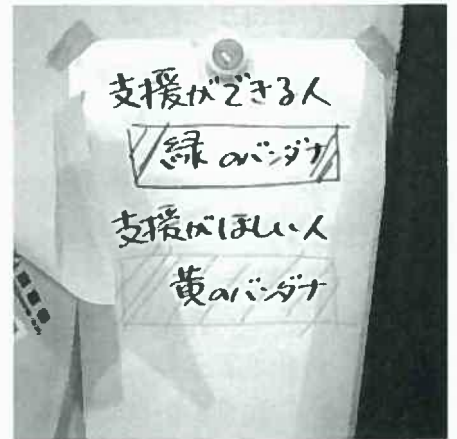 支援ができる人
緑のバンダナ
支援がほしい人
黄のバンダナ